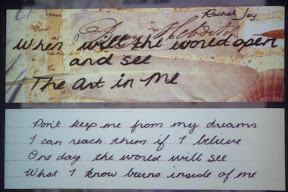 Rachel Joy
When will the world open
and see
The Art in Me
Don't keep me from my dreams
I can reach them if I believe
One day the world will see
What I know burns inside of me